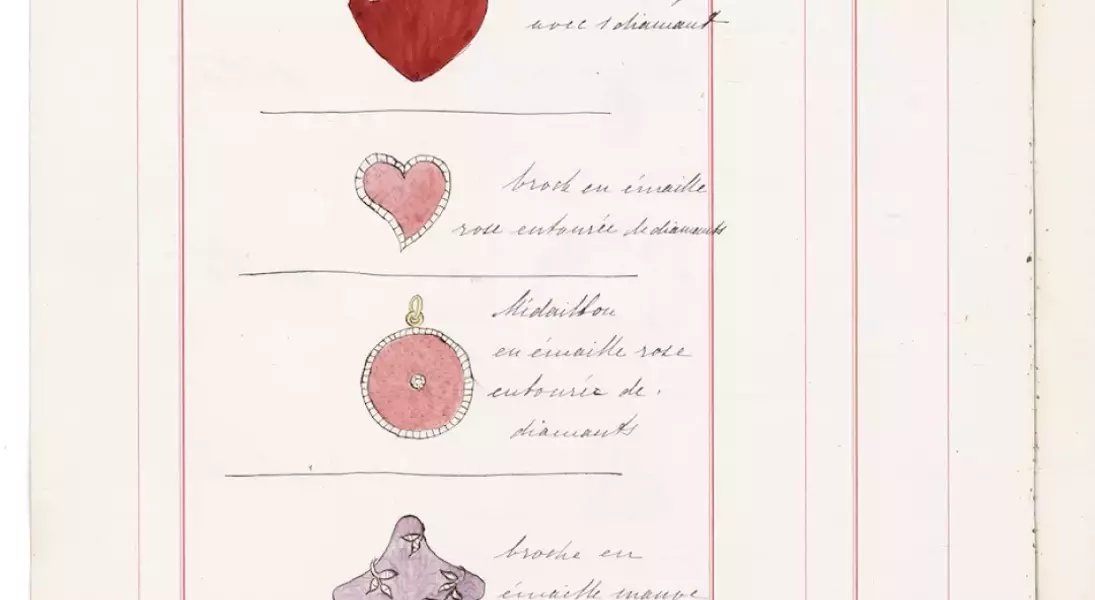 avec 1 diamant
broch en émaille
rose entourée de diamants
Médaillon
en émaille rose
entourée de
diamants
broche en
émaille mauve